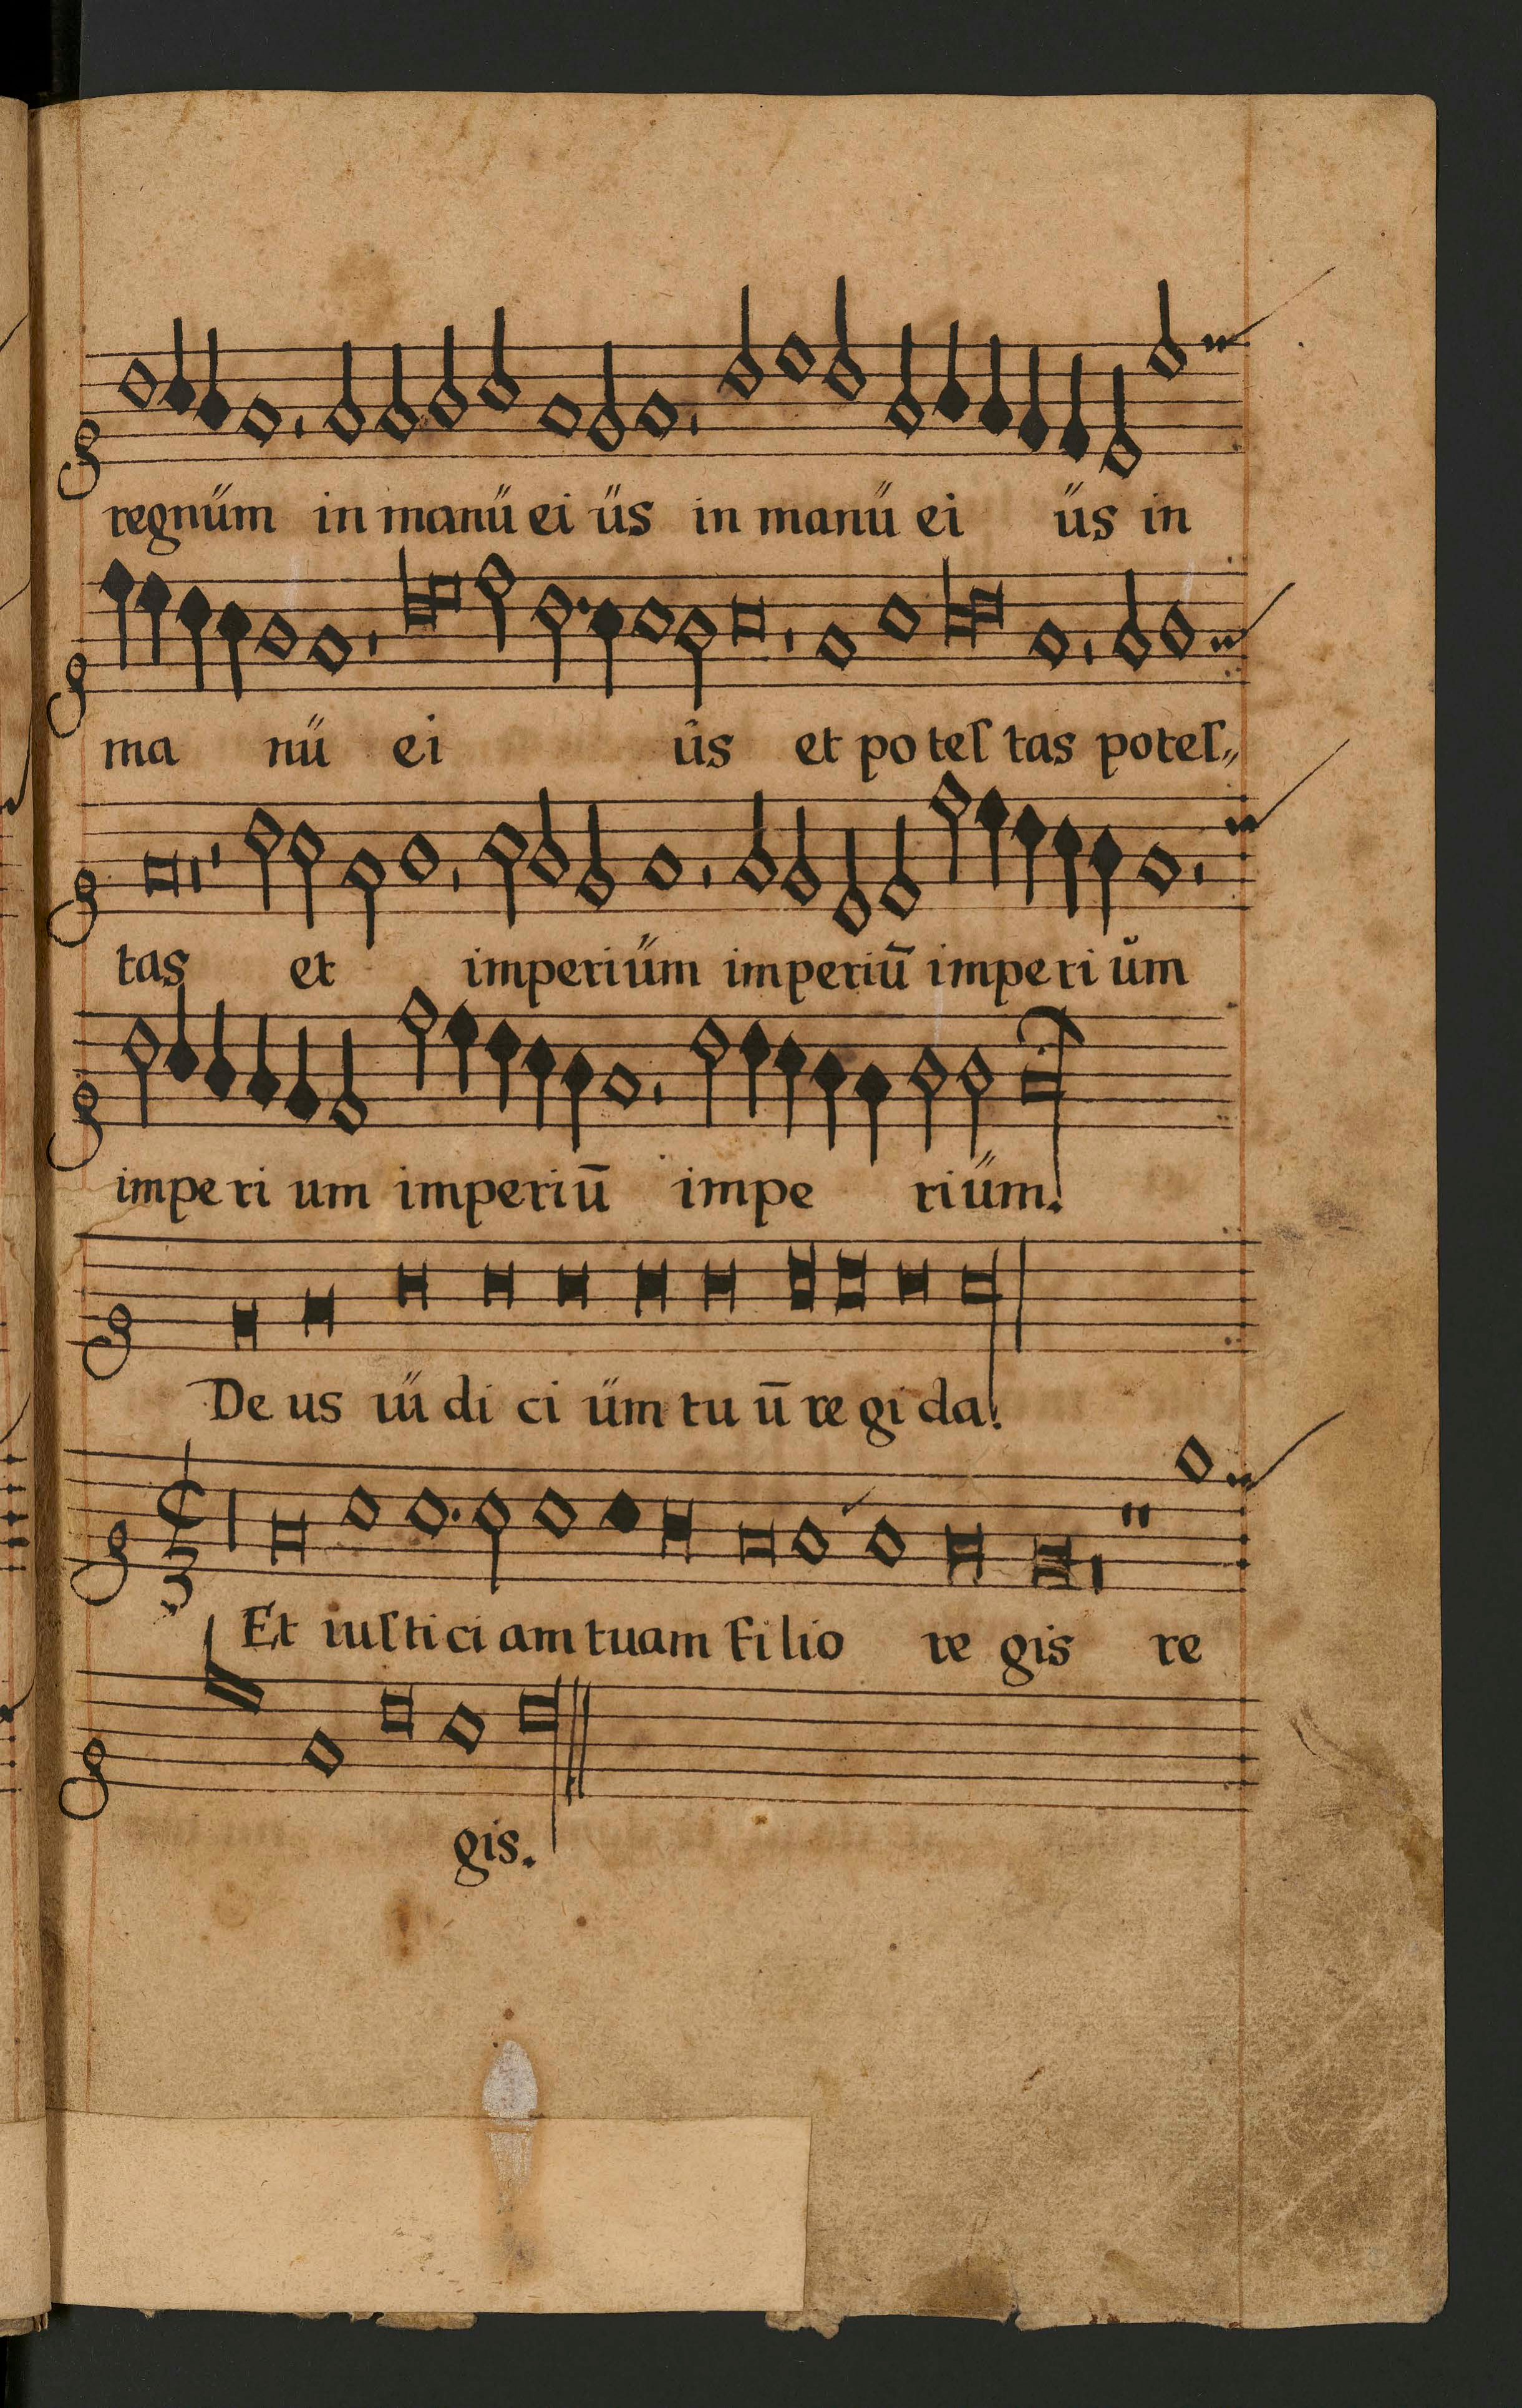 regnűm in manű ei űs in manű ei űs in
ma nű ei űs et po teſ tas poteſ„
tas et imperiűm imperiū imperi ům
imperi um imperiū impe riűm.
De us iű di ci űm tu ū re gi da.
Et iuſti ci am tuam Filio re gis re
gis.